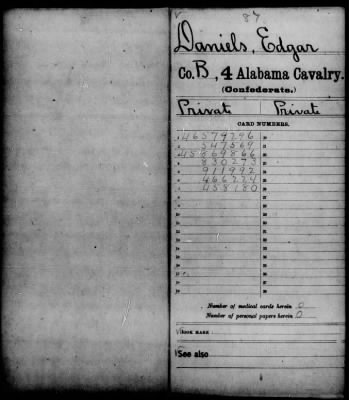 87
Daniels, Edgar
Co. B, 4 Alabama Cavalry.
(Confederate.)
Private Private
CARD NUMBERS.
1 46579296
2 547569
3 45869866
4 830273
5 911992
6 466224
7 458180
Number of medical cards herein 0
Number of personal papers herein 0
BOOK MARK:
See also